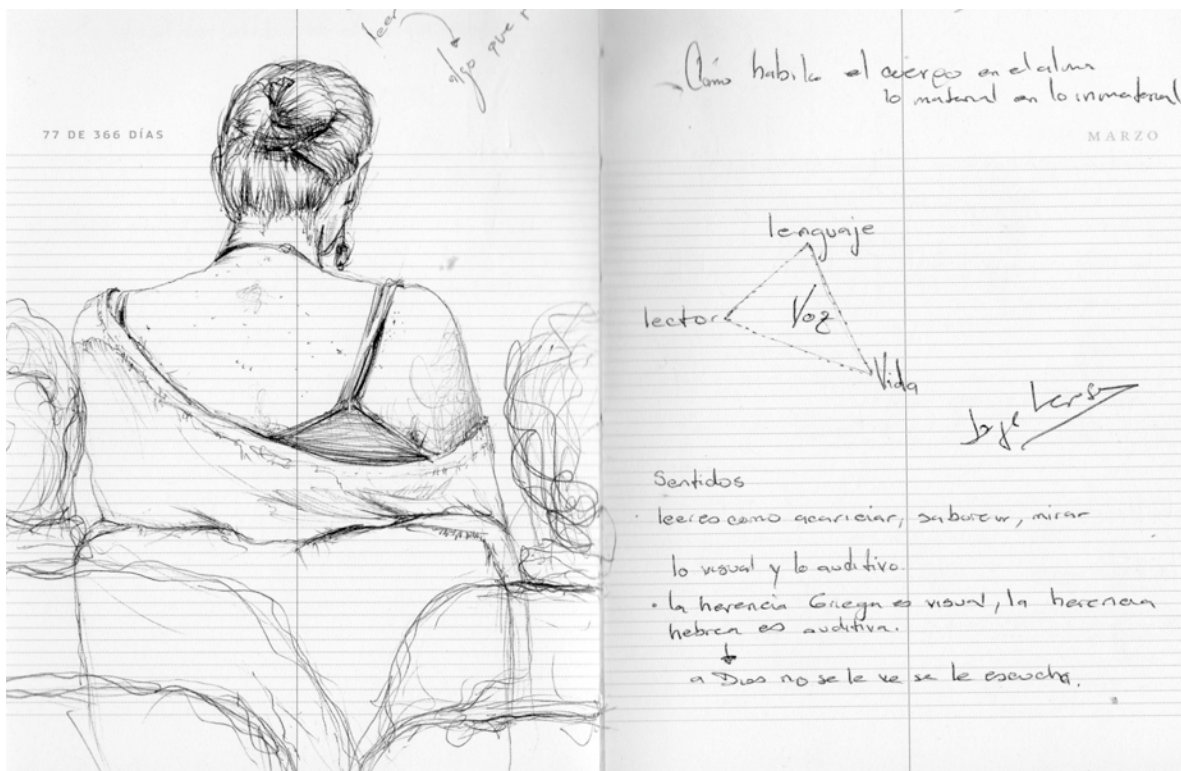 leer
algo que
77 DE 366 DÍAS
Cómo habita el cuerpo en el alma
lo material en lo inmaterial
MARZO
lenguaje
lector
Voz
Vida
Jorge
Sentidos
· leer es como acariciar, saborear, mirar
lo visual y lo auditivo.
· la herencia Griega es visual, la herencia
hebrea es auditiva.
a Dios no se le ve se le escucha.